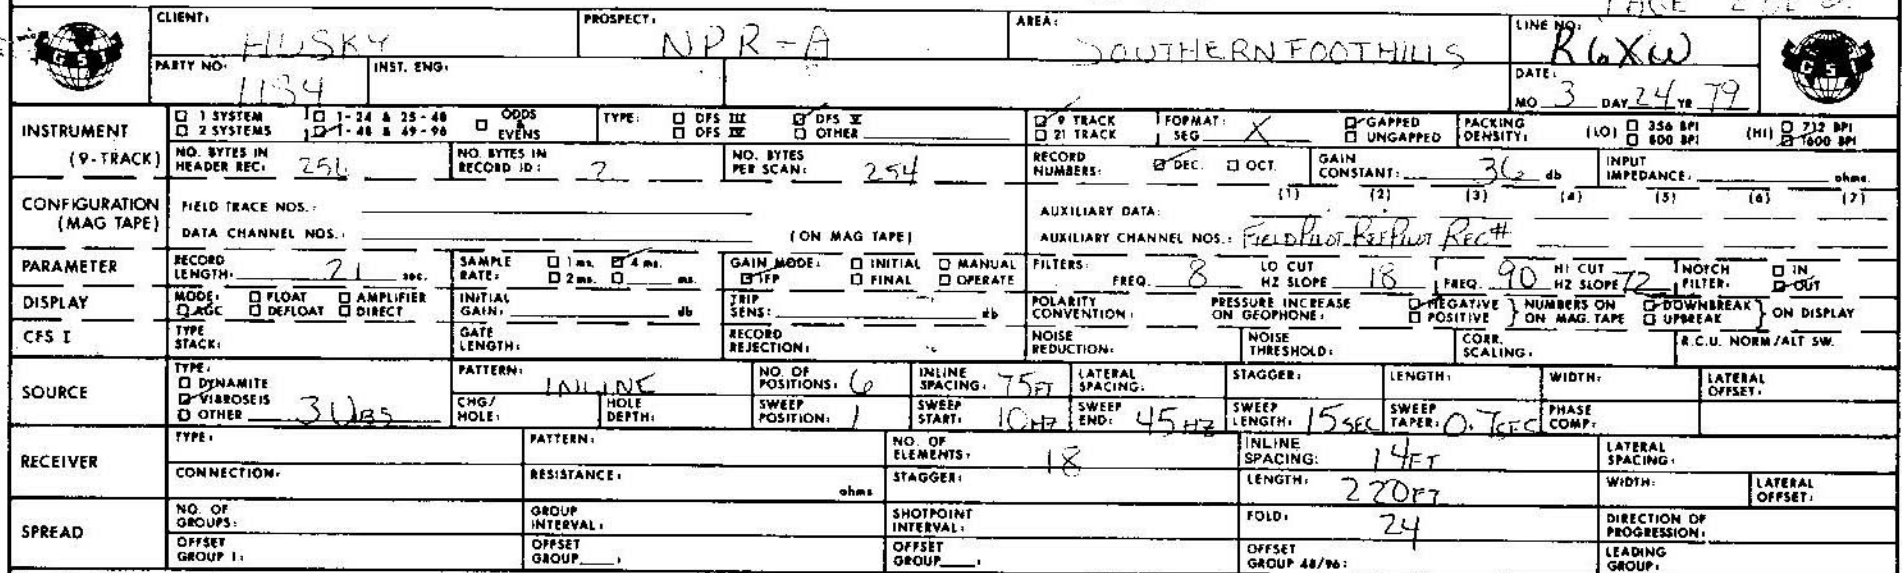 PAGE 2 OF
CLIENT: HUSKY PROSPECT: NPR-A AREA: SOUTHERN FOOTHILLS LINE NO: R6XW
GSI PARTY NO: 1184 INST. ENG: DATE: MO 3 DAY 24 YR 79 GSI
INSTRUMENT (9-TRACK) 1 SYSTEM 1-24 & 25-48 ODDS & EVENS TYPE: DFS III DFS V 9 TRACK FORMAT: SEG X GAPPED PACKING DENSITY: (LO) 356 BPI (HI) 712 BPI
2 SYSTEMS 1-48 & 49-96 DFS IV OTHER 21 TRACK UNGAPPED 800 BPI 1600 BPI
NO. BYTES IN HEADER REC: 256 NO. BYTES IN RECORD ID: 2 NO. BYTES PER SCAN: 254 RECORD NUMBERS: DEC. OCT. GAIN CONSTANT: 36 db INPUT IMPEDANCE: ohms.
CONFIGURATION (MAG TAPE) FIELD TRACE NOS.: AUXILIARY DATA: (1) (2) (3) (4) (5) (6) (7)
DATA CHANNEL NOS.: (ON MAG TAPE) AUXILIARY CHANNEL NOS.: FIELD PILOT REF PILOT REC#
PARAMETER RECORD LENGTH: 21 sec. SAMPLE RATE: 1 ms. 4 ms. 2 ms. ms. GAIN MODE: INITIAL MANUAL IFP FINAL OPERATE FILTERS: FREQ. 8 LO CUT HZ SLOPE 18 FREQ. 90 HI CUT HZ SLOPE 72 NOTCH FILTER: IN OUT
DISPLAY MODE: FLOAT AMPLIFIER AGC DEFLOAT DIRECT INITIAL GAIN: db TRIP SENS: db POLARITY CONVENTION: PRESSURE INCREASE ON GEOPHONE: NEGATIVE POSITIVE NUMBERS ON ON MAG. TAPE DOWNBREAK UPBREAK ON DISPLAY
CFS I TYPE STACK: GATE LENGTH: RECORD REJECTION: NOISE REDUCTION: NOISE THRESHOLD: CORR. SCALING: R.C.U. NORM/ALT SW.
SOURCE TYPE: DYNAMITE VIBROSEIS OTHER 3 VIBS PATTERN: INLINE NO. OF POSITIONS: 6 INLINE SPACING: 75FT LATERAL SPACING: STAGGER: LENGTH: WIDTH: LATERAL OFFSET:
CHG/HOLE: HOLE DEPTH: SWEEP POSITION: 1 SWEEP START: 10HZ SWEEP END: 45HZ SWEEP LENGTH: 15SEC SWEEP TAPER: 0.7SEC PHASE COMP:
RECEIVER TYPE: PATTERN: NO. OF ELEMENTS: 18 INLINE SPACING: 14FT LATERAL SPACING:
CONNECTION: RESISTANCE: ohms STAGGER: LENGTH: 220FT WIDTH: LATERAL OFFSET:
SPREAD NO. OF GROUPS: GROUP INTERVAL: SHOTPOINT INTERVAL: FOLD: 24 DIRECTION OF PROGRESSION:
OFFSET GROUP 1: OFFSET GROUP : OFFSET GROUP : OFFSET GROUP 48/96: LEADING GROUP: